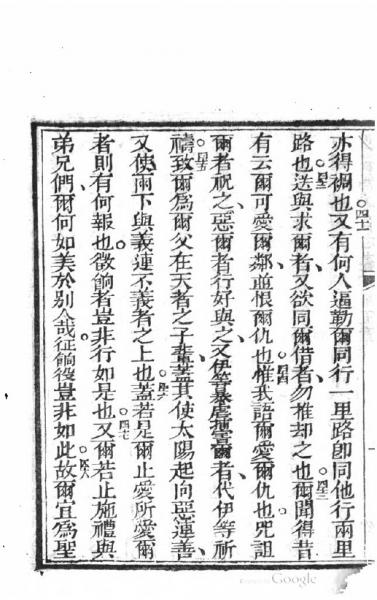 亦得裯也。四十一又有何人逼勒爾同行一里路卽同他行兩里
路也。四二送與求爾者、又欲同爾借者勿推却之也。四三爾聞得昔
有云爾可愛爾鄰、並恨爾仇也。四四惟我語爾愛爾仇也、咒詛
爾者祝之、惡爾者行好與之、又伊等暴虐捕害爾者、代伊等祈
禱。四五致爾爲爾父在天者之子輩、蓋其使太陽起向惡連善、
又使雨下與義連不義者之上也。四六蓋若是爾止愛所愛爾
者則有何報也。徵餉者豈非行如是也。四七又爾若止施禮與
弟兄們、爾何如美於別人哉。征餉役豈非如此。四八故爾宜爲聖
Google